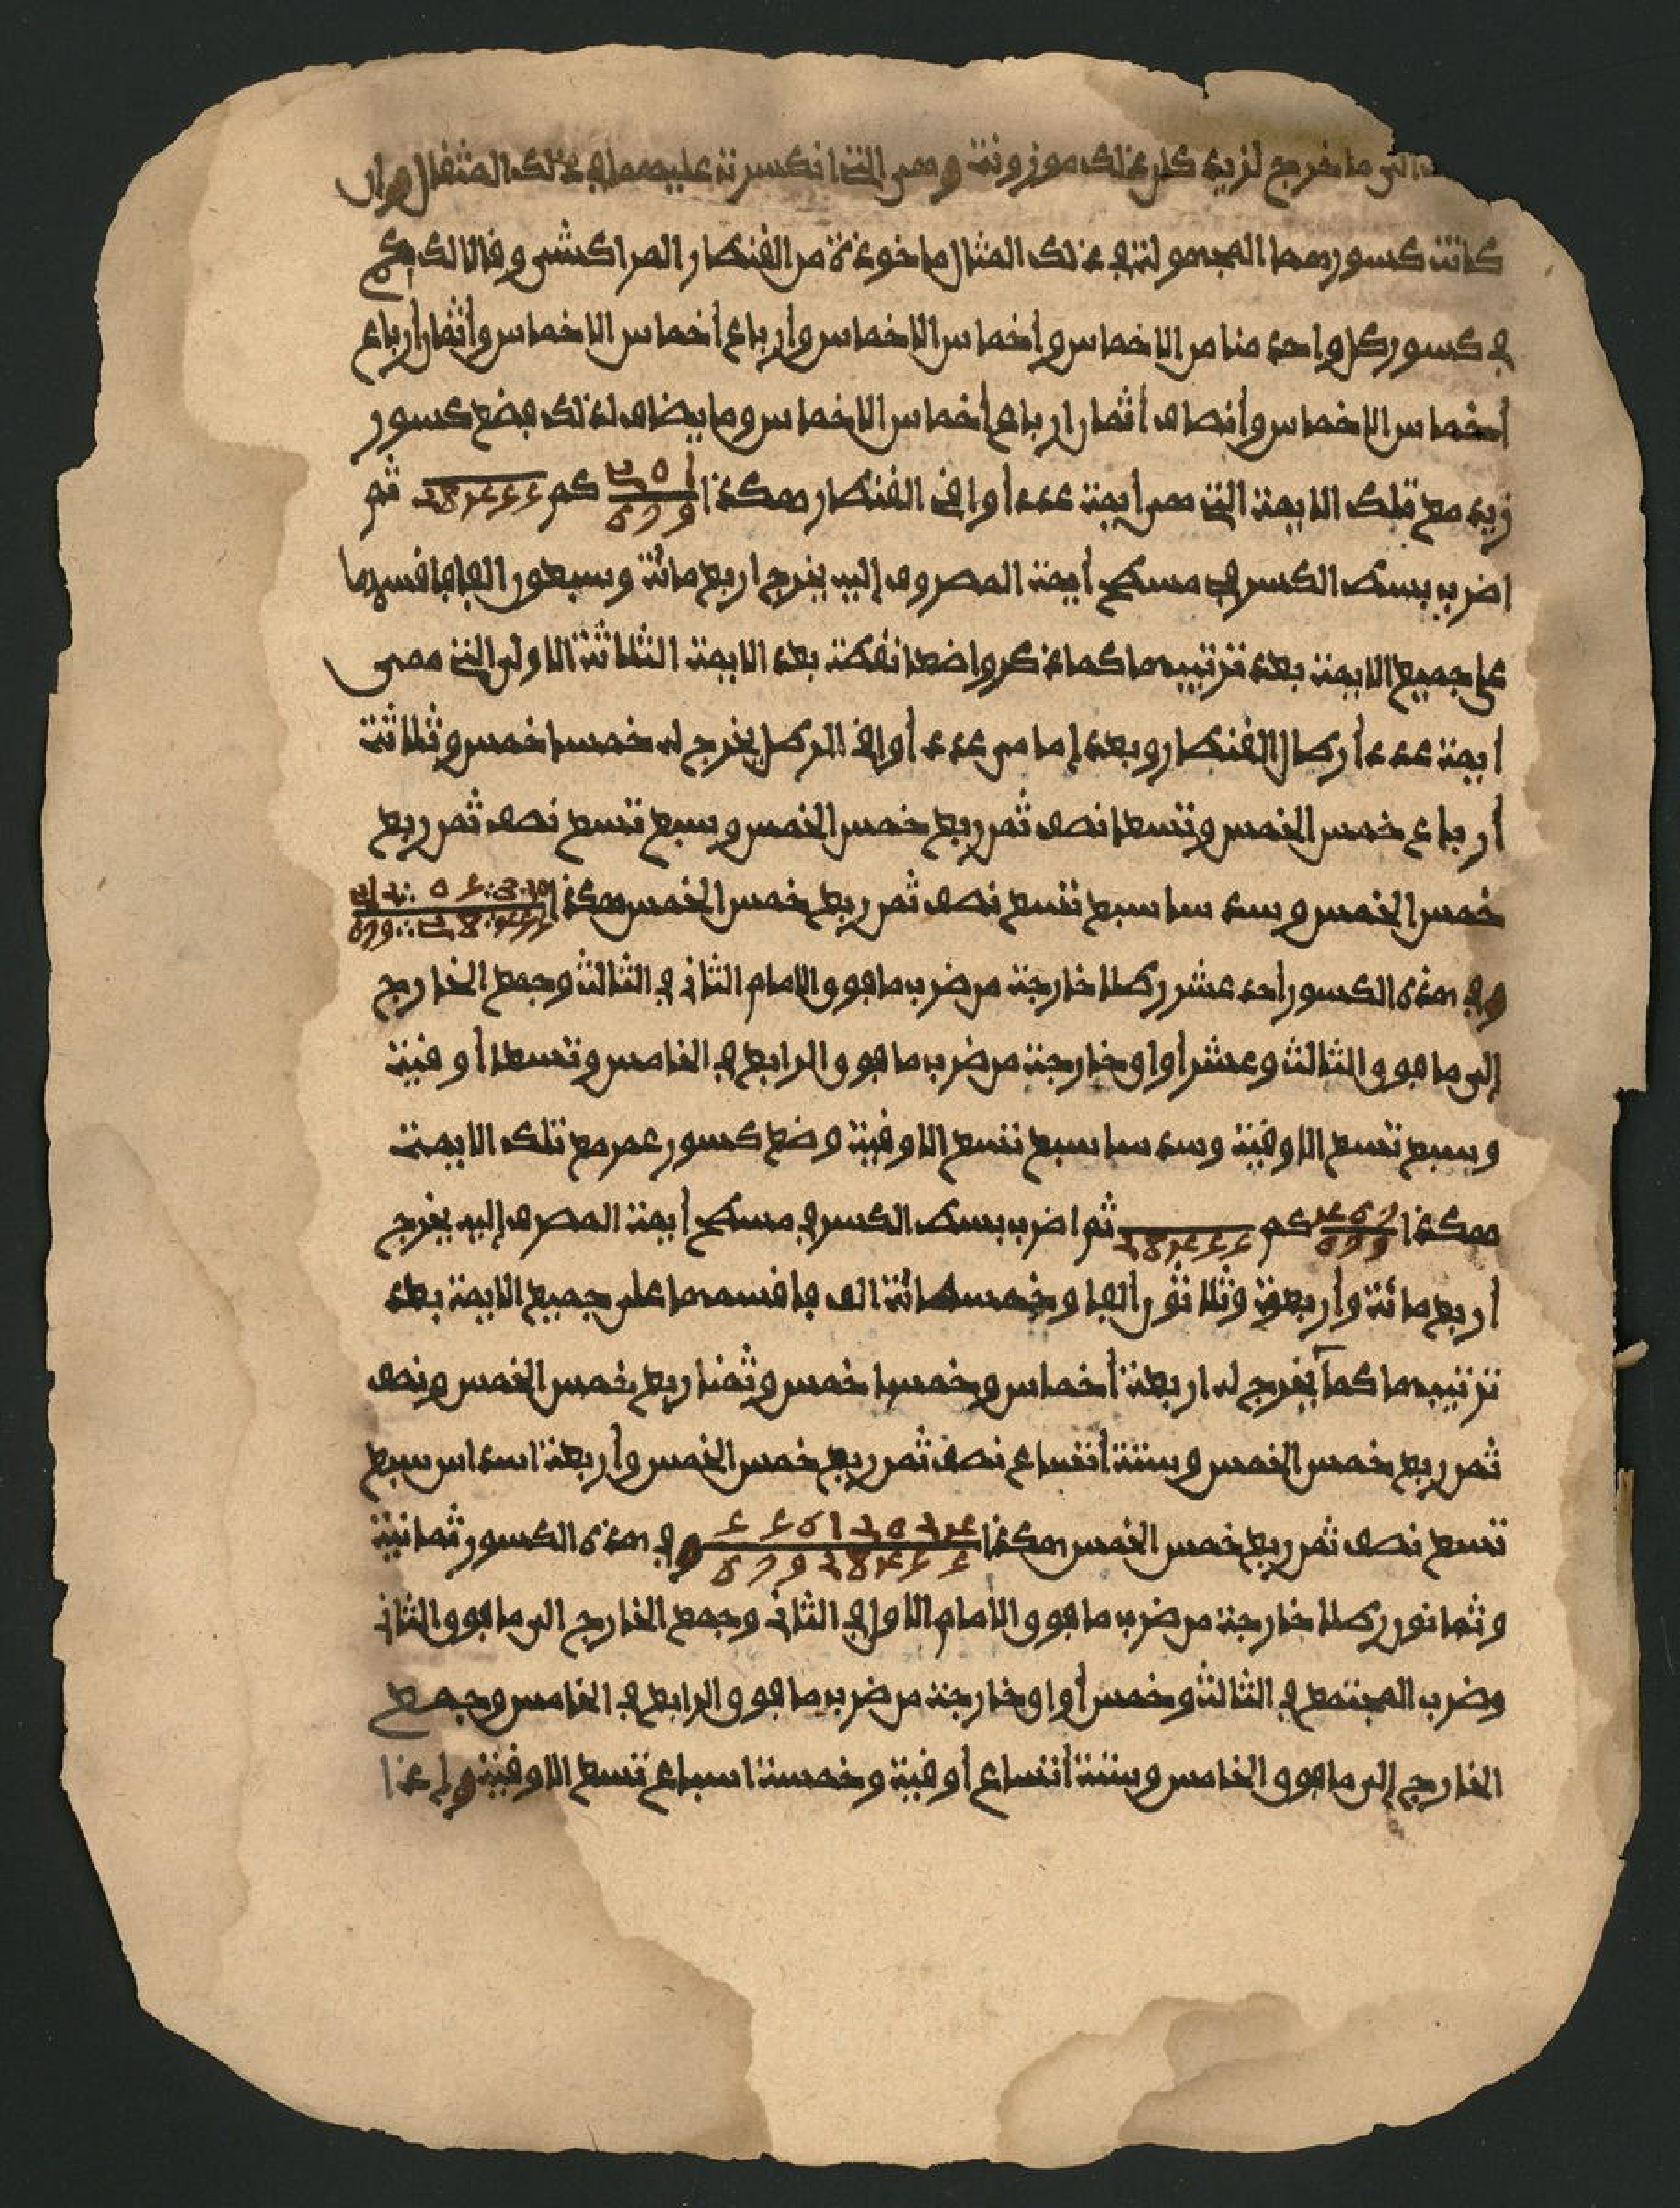 الى ما خرج لزيد كل ذلك موزونة وهى التى انكسرت عليهما فى ذلك المثقال وان
كانت كسورهما المجهولة فى ذلك المثال ماخوذة من القنطار المراكشى وقالا لك
فى كسور كل واحد منا من الاخماس وأخماس الاخماس وأرباع أخماس الاخماس وأثمان أرباع
أخماس الاخماس وأنصاف أثمان ارباع أخماس الاخماس وما يضاف لذلك فضع كسور
زيد مع تلك الايمة التى هى أيمة عدد أواقى القنطار هكذا كم ثم
اضرب بسط الكسر فى مسطح أيمة المصروف إليه يخرج اربع مائة وسبعون الفا فاقسمها
على جميع الايمة بعد ترتيبها كما ذكر واضعا نقطة بعد الايمة الثلاثة الاولى التى هى
أيمة عدد أرطال القنطار وبعد إمامى عدد أواقى الرطل يخرج له خمسا خمس وثلاثة
أرباع خمس الخمس وتسعا نصف ثمن ربع خمس الخمس وسبع تسع نصف ثمن ربع
خمس الخمس وسدسا سبع تسع نصف ثمن ربع خمس الخمس هكذا
وفى هذه الكسور أحد عشر رطلا خارجة من ضرب ما فوق الامام الثانى فى الثالث وجمع الخارج
إلى ما فوق الثالث وعشر أواق خارجة من ضرب ما فوق الرابع فى الخامس وتسعا أوقية
وسبع تسع الاوقية وسدسا سبع تسع الاوقية وضع كسور عمر مع تلك الايمة
هكذا كم ثم اضرب بسط الكسر فى مسطح أيمة المصرف إليه يخرج
أربع مائة وأربعة وثلاثون ألفا وخمسمائة الف فاقسمها على جميع الايمة بعد
ترتيبها كما يخرج له اربعة أخماس وخمسا خمس وثمنا ربع خمس الخمس ونصف
ثمن ربع خمس الخمس وستة أتساع نصف ثمن ربع خمس الخمس وأربعة اسداس سبع
تسع نصف ثمن ربع خمس الخمس هكذا وفى هذه الكسور ثمانية
وثمانون رطلا خارجة من ضرب ما فوق الامام الاول فى الثانى وجمع الخارج الى ما فوق الثانى
وضرب المجتمع فى الثالث وخمس أواق خارجة من ضرب ما فوق الرابع فى الخامس وجمع
الخارج إلى ما فوق الخامس وستة أتساع أوقية وخمسة اسباع تسع الاوقية وإذا